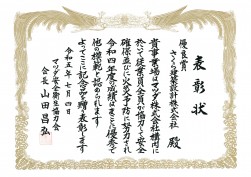 表彰状
優良賞
さくら建築設計株式会社 殿
貴事業場はマツダ株式会社構内に
於て従業員全員が協力して安全
確保並びに火災予防に努力され
令和四年度の成績はまことに優秀で
他の模範と認められます
よってここに記念品を贈り表彰します
令和五年七月四日
マツダ安全衛生協力会
会長 山田昌弘